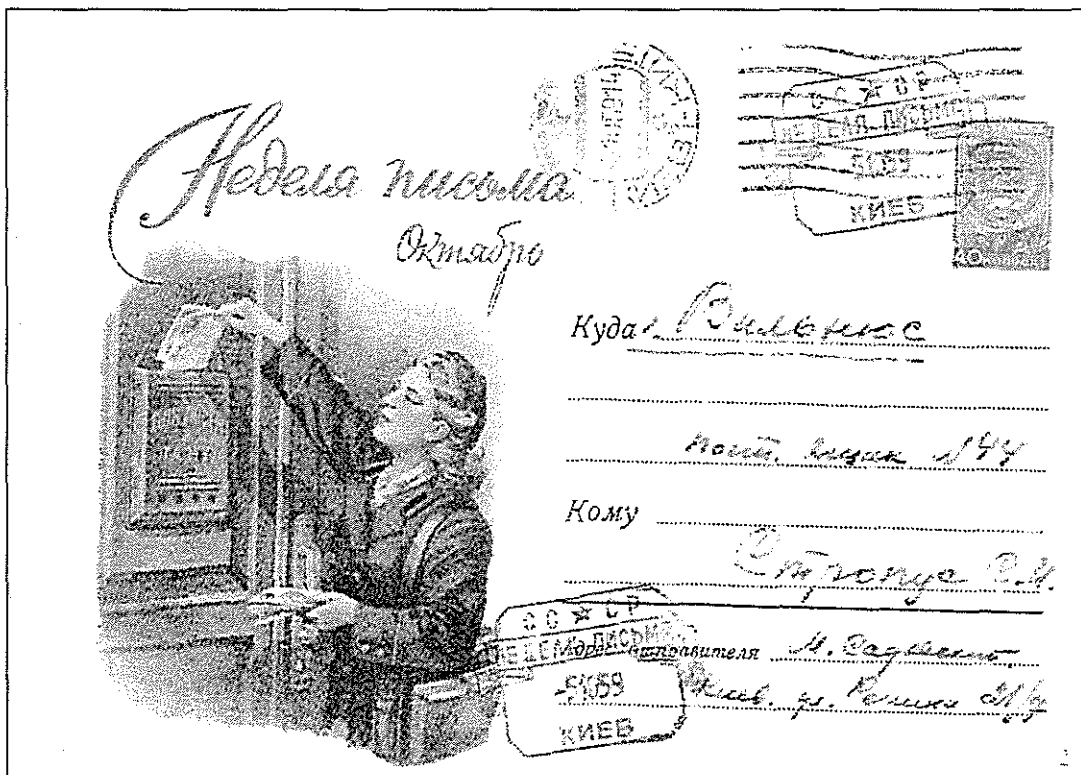 Неделя письма
Октябрь
СС★СР
НЕДЕЛЯ ПИСЬМА
-51059
КИЕВ
40
Куда г. Вильнюс
почт. ящик №44
Кому
Стропус
СС★СР
НЕДЕЛЯ ПИСЬМА
-51059
КИЕВ
отправителя М.
Киев. ул.